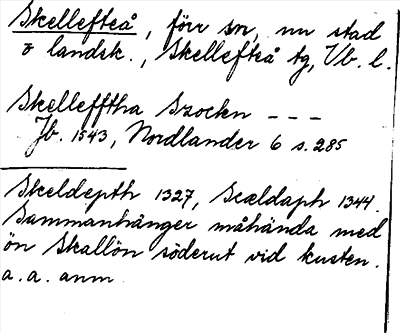 Skellefteå, förr sn, nu stad
o landsk., Skellefteå tg, Vb. l.
Skellefftha Szocken - - -
Jb. 1543, Nordlander 6 s. 285
Skeldepth 1327, Scældaph 1344.
Sammanhänger måhända med
ön Skallön söderut vid kusten.
a. a. anm